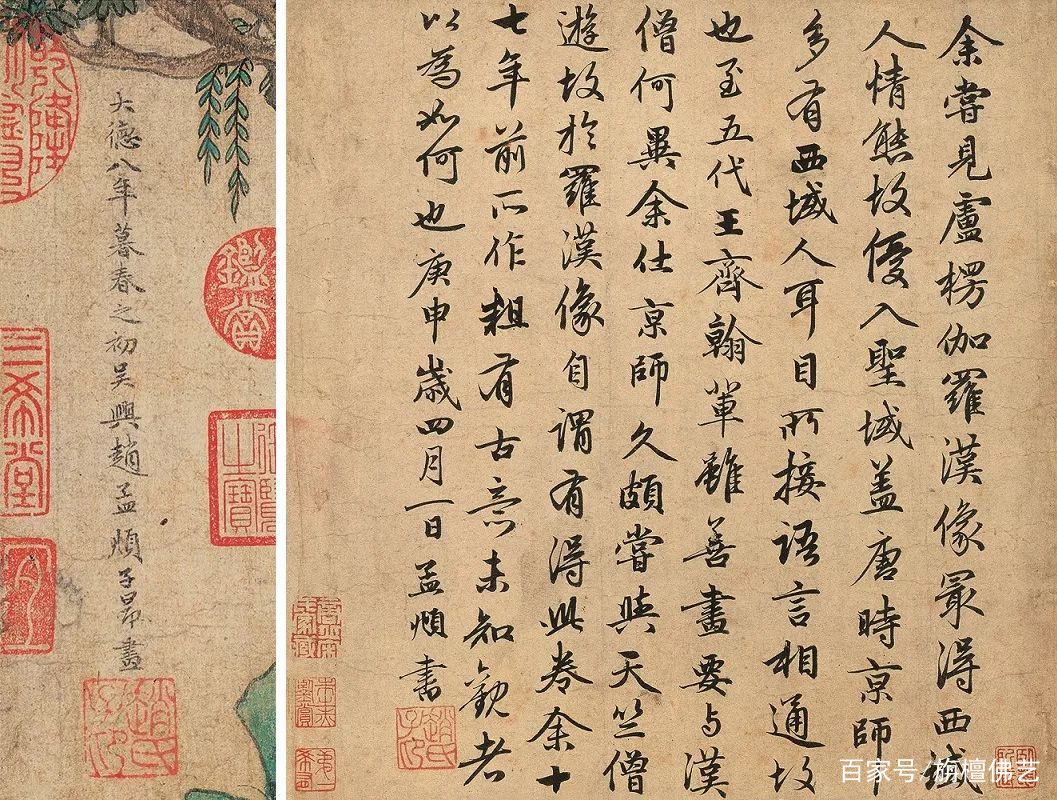 余嘗見盧楞伽羅漢像最得西域
人情態故優入聖域盖唐時京師
多有西域人耳目所接語言相通故
也至五代王齊翰輩雖善畫要与漢
僧何異余仕京師久頗嘗與天竺僧
遊故於羅漢像自謂有得此卷余十
七年前所作粗有古意未知觀者
以為如何也庚申歲四月一日孟頫書
趙氏子昂
大德八年暮春之初吳興趙孟頫子昂畫
趙氏子昂
三希堂
百家号/旃檀佛艺